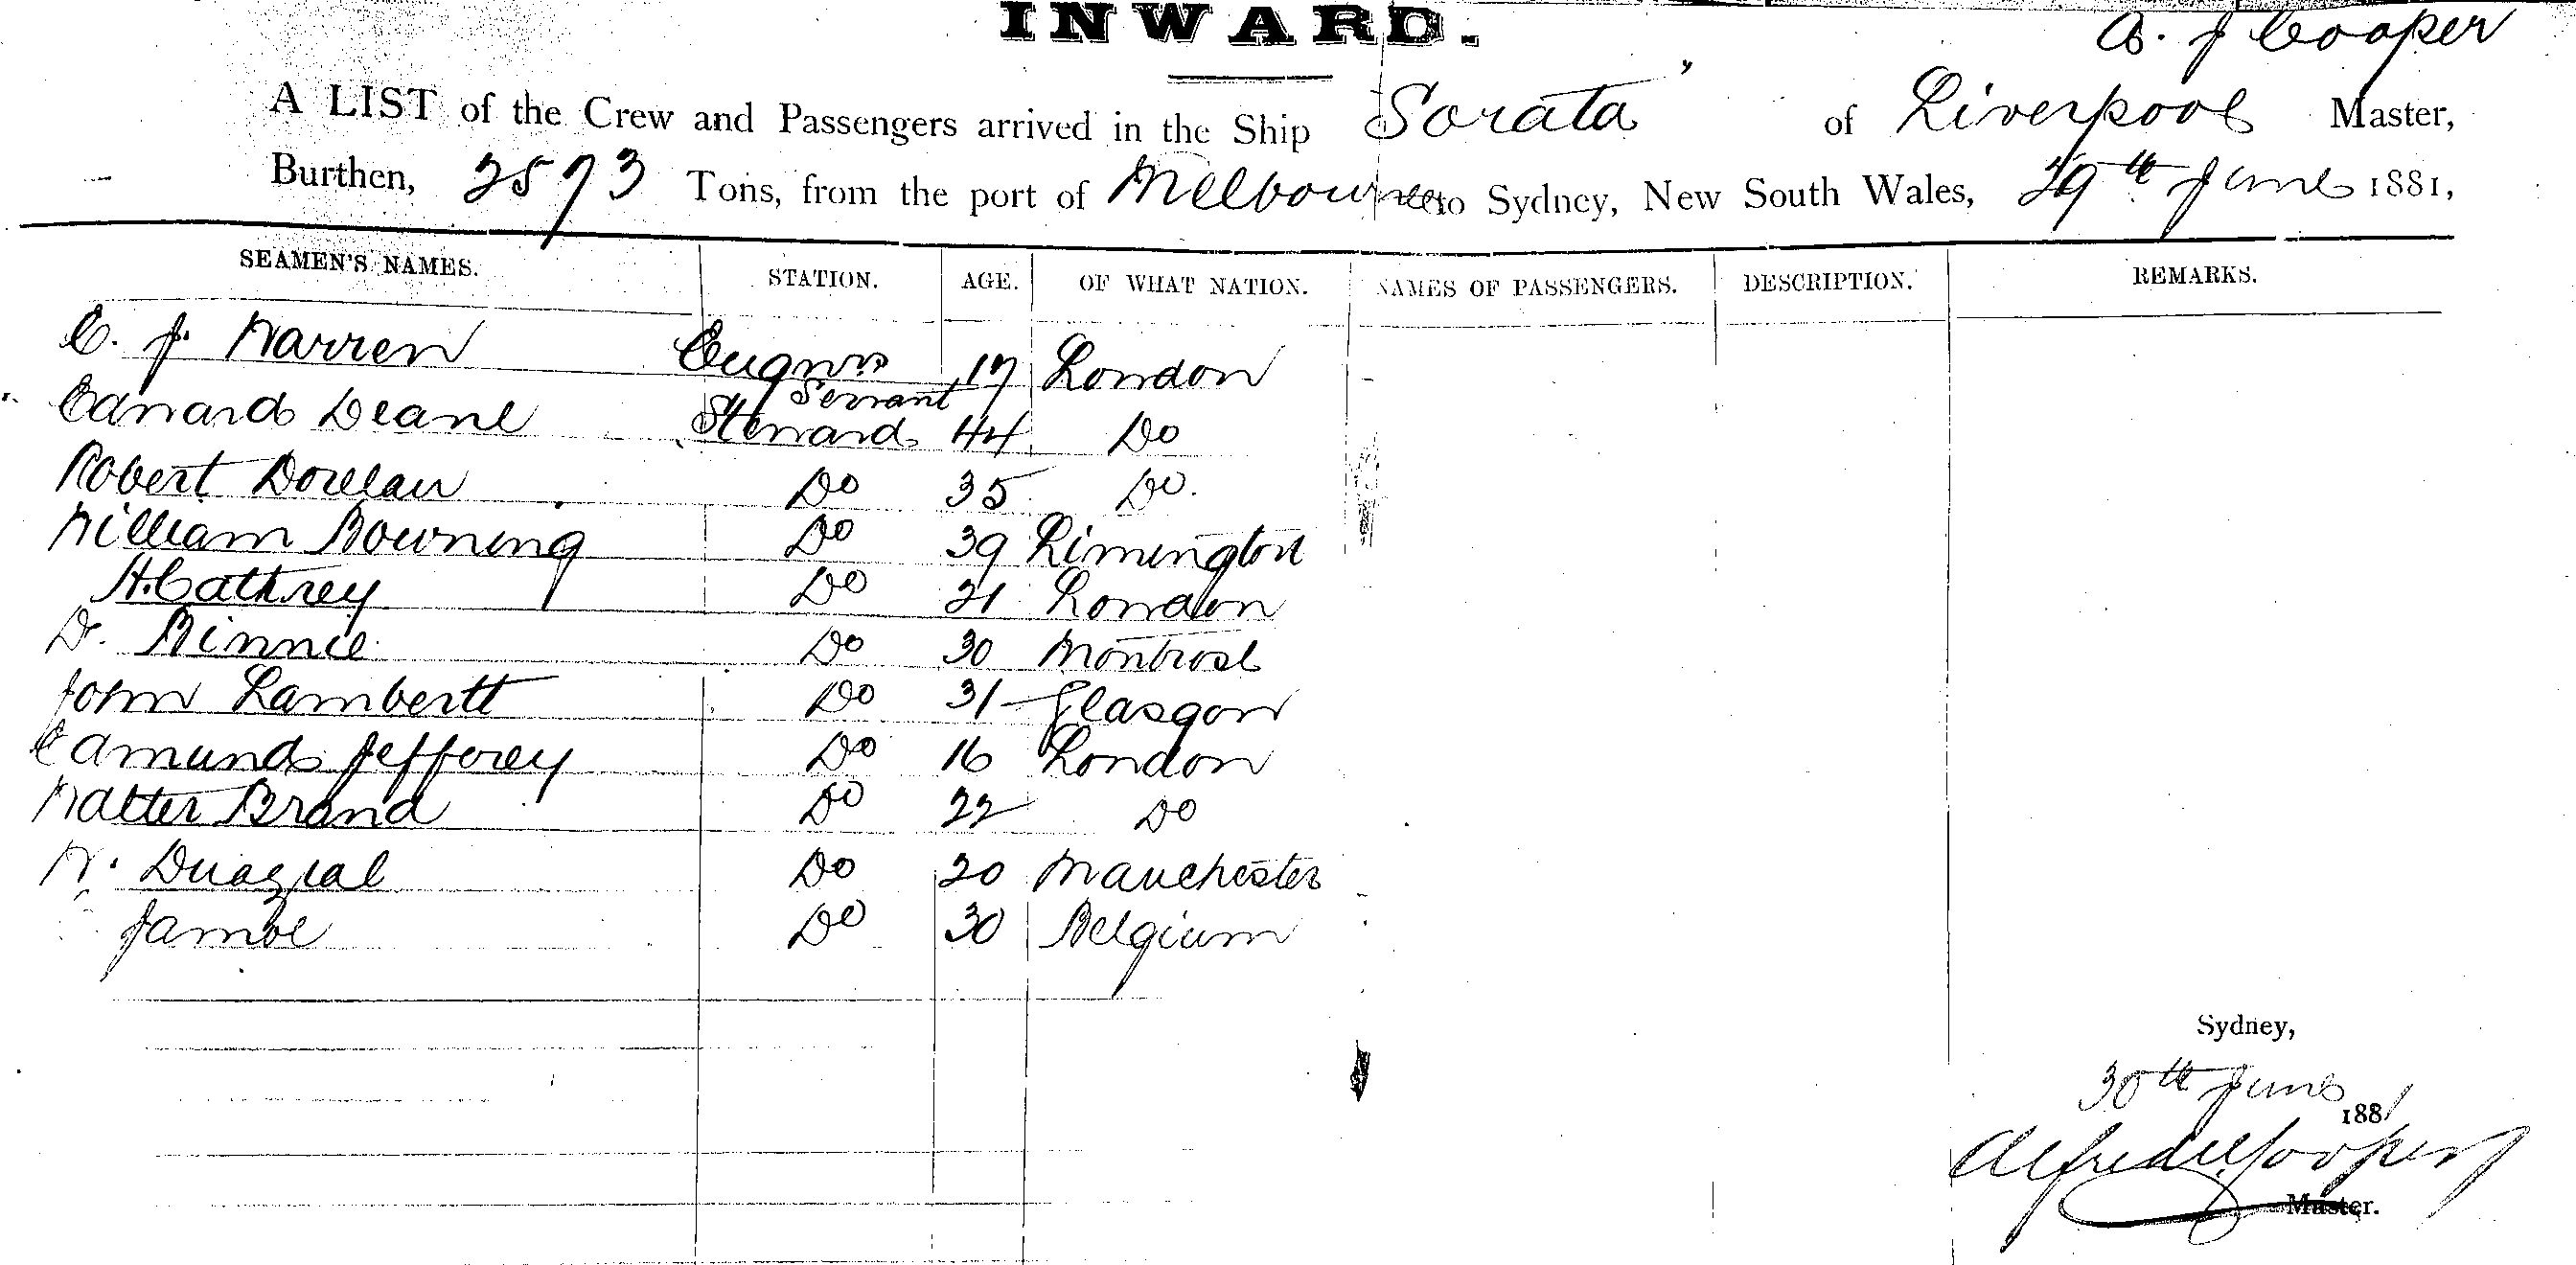 INWARD.
A. J Cooper
A LIST of the Crew and Passengers arrived in the Ship Sorata" of Liverpool Master,
Burthen, 2573 Tons, from the port of Melbourne to Sydney, New South Wales, 29th June 1881,
SEAMEN'S NAMES. STATION. AGE. OF WHAT NATION. NAMES OF PASSENGERS. DESCRIPTION. REMARKS.
C. J. Warren Engnrs Servant 17 London
Edward Deane Steward 44 Do
Robert Do 35 Do.
William Downing Do 39 Limington
H. Cathrey Do 21 London
D. Binnie Do 30 Montrose
John Lambertt Do 31 Glasgow
Edmund Jefferey Do 16 London
Walter Brand Do 22 Do
W. Do 20 Manchester
Do 30 Belgium
Sydney,
30th June
1881
Alfred J Cooper
Master.